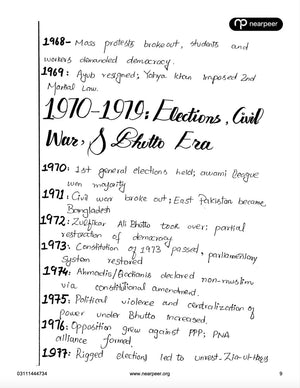 nearpeer
1968- Mass protests broke out, students and
workers demanded democracy.
1969: Ayub resigned; Yahya khan imposed 2nd
Martial Law.
1970-1979: Elections, Civil
War, & Bhutto Era
1970: 1st general elections held; awami league
won majority
1971: Civil war broke out; East Pakistan became
Bangladesh
1972: Zulfikar Ali Bhutto took over; partial
restoration of democracy
1973: Constitution of 1973 passed, parliamentary
system restored
1974: Ahmadis/Qadianis declared non-muslim
via constitutional amendment.
1975: Political violence and centralization of
power under Bhutto increased.
1976: Opposition grew against PPP; PNA
alliance formed.
1977: Rigged elections led to unrest-Zia-ul-Haq's
03111444734
www.nearpeer.org
9